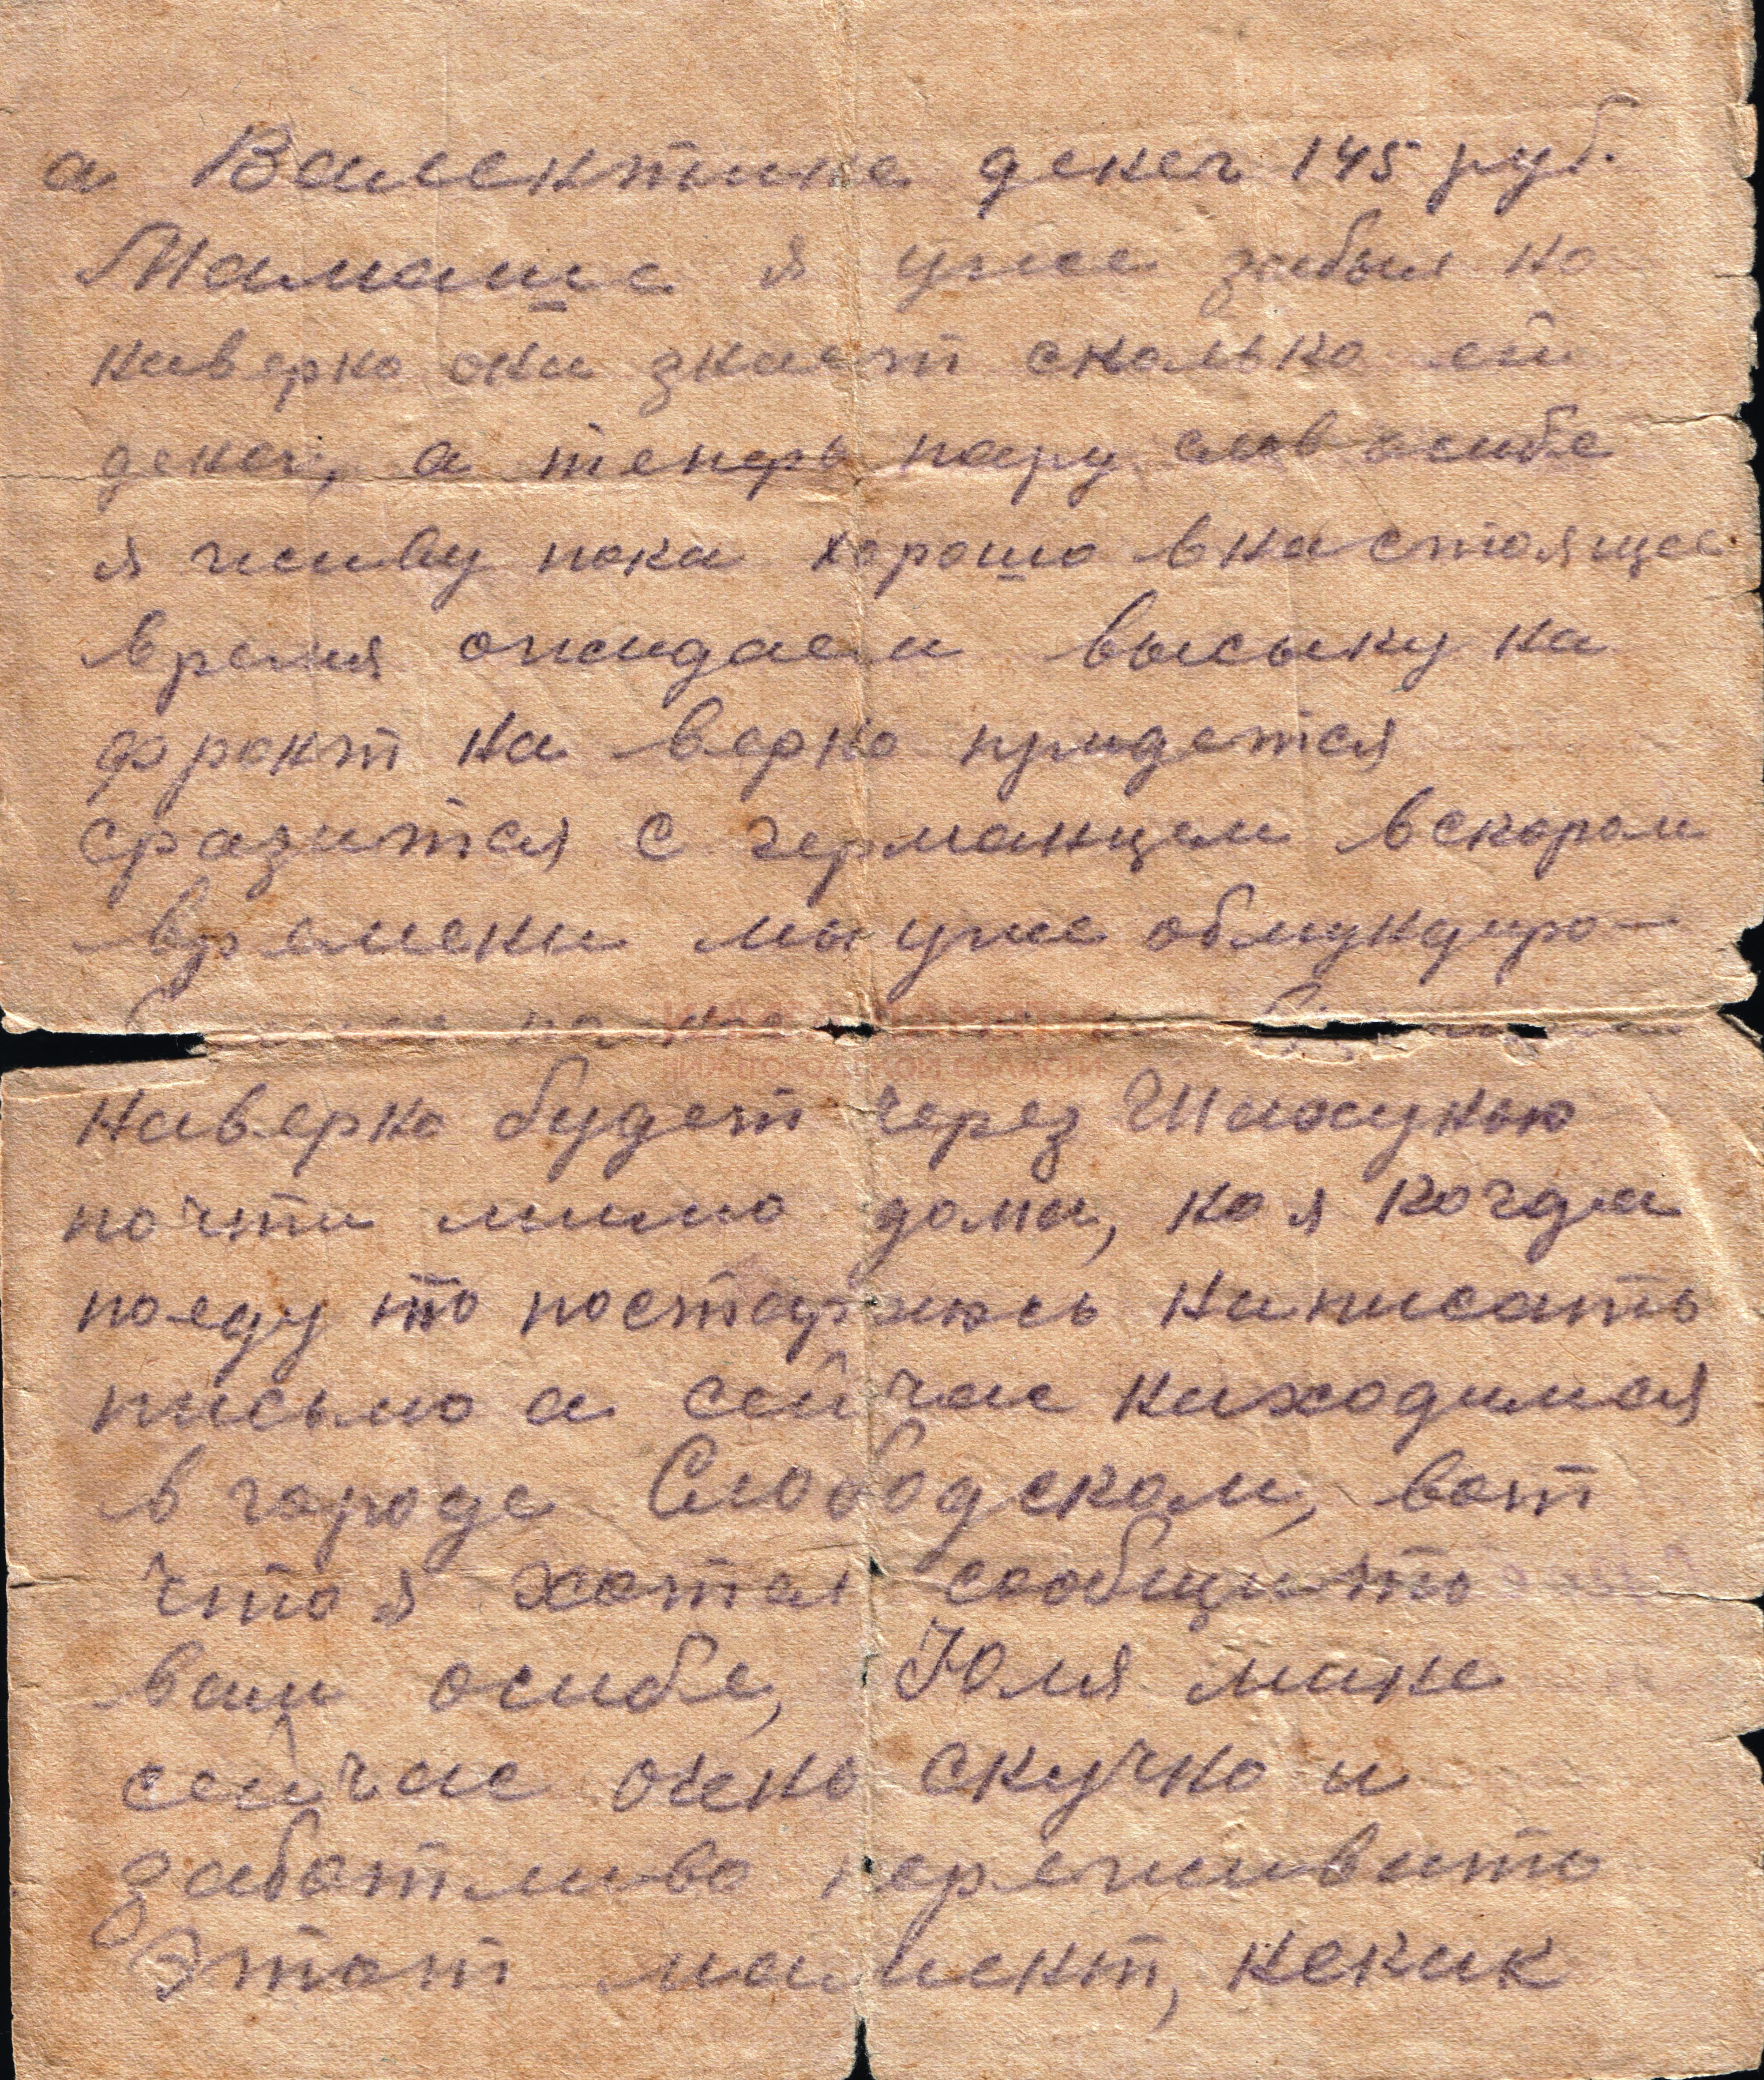 а Валентине денег 145 руб.
Мамаше я уже забыл но
наверно она знает сколько ей
денег, а теперь пару слов осибе
я живу пока хорошо внастоящее
время ожидаем высыку на
фронт на верно придется
сразится с германцем вскором
времени мы уже обмундиро-
наверно будет через Шахунью
почти мимо дома, но я когда
поеду то постораюсь написать
письмо а сейчас находимся
в городе Слободском, вот
что я хотел сообщить
вам осибе, Юля мне
сейчас очень скучно и
заботливо переживать
Этот момент, некак